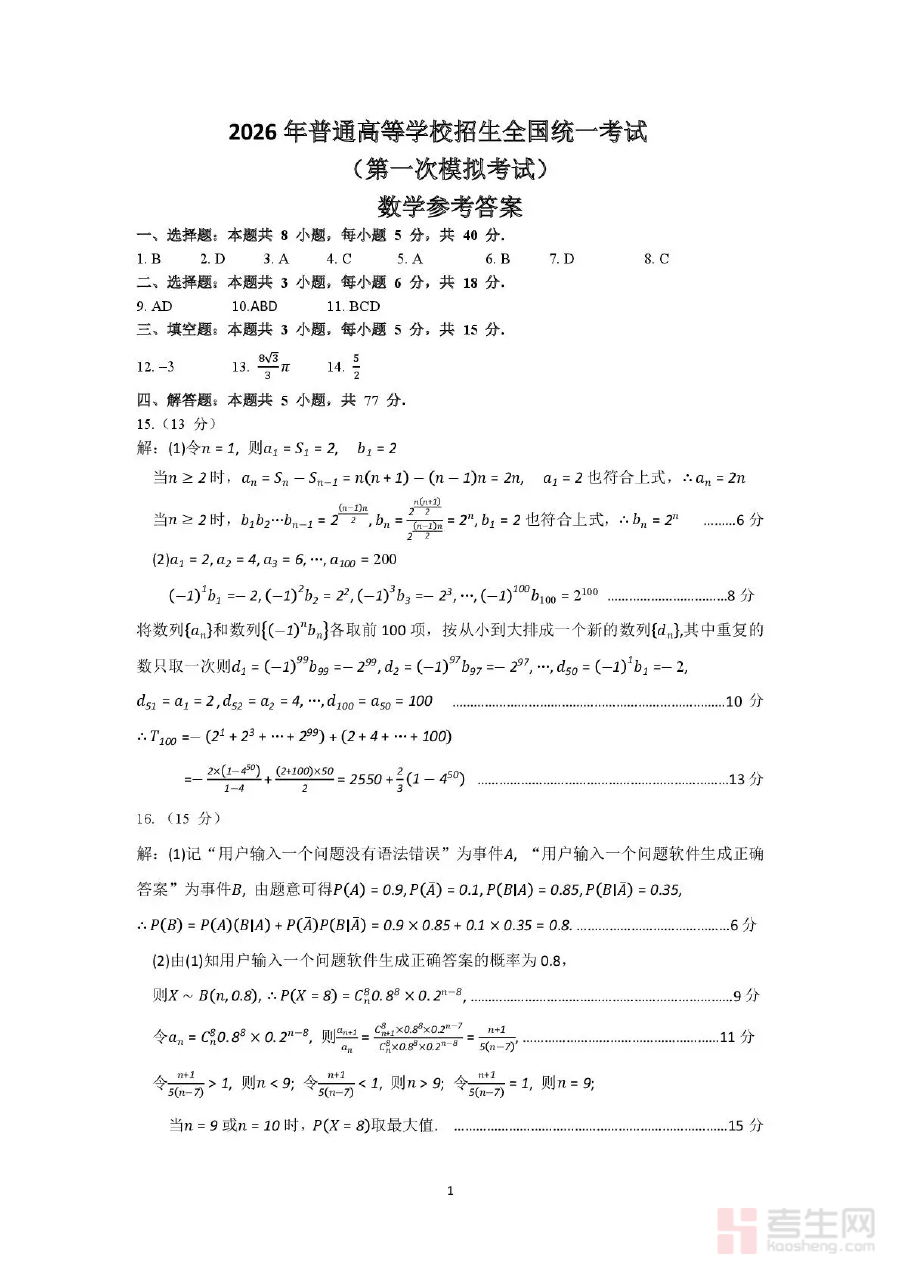 2026 年普通高等学校招生全国统一考试
（第一次模拟考试）
数学参考答案
一、选择题：本题共 8 小题，每小题 5 分，共 40 分．
1. B 2. D 3. A 4. C 5. A 6. B 7. D 8. C
二、选择题：本题共 3 小题，每小题 6 分，共 18 分．
9. AD 10.ABD 11. BCD
三、填空题：本题共 3 小题，每小题 5 分，共 15 分．
12. −3 13. 8√3/3 π 14. 5/2
四、解答题：本题共 5 小题，共 77 分．
15.（13 分）
解：(1)令n = 1, 则a₁ = S₁ = 2, b₁ = 2
当n ≥ 2 时，aₙ = Sₙ − Sₙ₋₁ = n(n + 1) − (n − 1)n = 2n, a₁ = 2 也符合上式，∴ aₙ = 2n
当n ≥ 2 时，b₁b₂⋯bₙ₋₁ = 2^((n−1)n/2), bₙ = 2^(n(n+1)/2)/2^((n−1)n/2) = 2ⁿ, b₁ = 2 也符合上式，∴ bₙ = 2ⁿ ………6 分
(2)a₁ = 2, a₂ = 4, a₃ = 6, ⋯, a₁₀₀ = 200
(−1)¹b₁ =− 2, (−1)²b₂ = 2², (−1)³b₃ =− 2³, ⋯, (−1)¹⁰⁰b₁₀₀ = 2¹⁰⁰ ……………………………8 分
将数列{aₙ}和数列{(−1)ⁿbₙ}各取前 100 项，按从小到大排成一个新的数列{dₙ},其中重复的
数只取一次则d₁ = (−1)⁹⁹b₉₉ =− 2⁹⁹, d₂ = (−1)⁹⁷b₉₇ =− 2⁹⁷, ⋯, d₅₀ = (−1)¹b₁ =− 2,
d₅₁ = a₁ = 2 , d₅₂ = a₂ = 4, ⋯, d₁₀₀ = a₅₀ = 100 …………………………………………………………………10 分
∴ T₁₀₀ =− (2¹ + 2³ + ⋯ + 2⁹⁹) + (2 + 4 + ⋯ + 100)
=− 2×(1−4⁵⁰)/(1−4) + (2+100)×50/2 = 2550 + 2/3 (1 − 4⁵⁰) ……………………………………………………………13 分
16. （15 分）
解：(1)记“用户输入一个问题没有语法错误”为事件A, “用户输入一个问题软件生成正确
答案”为事件B, 由题意可得P(A) = 0.9, P(Ā) = 0.1, P(B|A) = 0.85, P(B|Ā) = 0.35,
∴ P(B) = P(A)(B|A) + P(Ā)P(B|Ā) = 0.9 × 0.85 + 0.1 × 0.35 = 0.8. ……………………………………6 分
(2)由(1)知用户输入一个问题软件生成正确答案的概率为 0.8，
则X ∼ B(n, 0.8), ∴ P(X = 8) = C⁸ₙ0. 8⁸ × 0. 2ⁿ⁻⁸, ………………………………………………………………9 分
令aₙ = C⁸ₙ0. 8⁸ × 0. 2ⁿ⁻⁸, 则aₙ₊₁/aₙ = (C⁸ₙ₊₁×0.8⁸×0.2ⁿ⁻⁷)/(C⁸ₙ×0.8⁸×0.2ⁿ⁻⁸) = (n+1)/(5(n−7)), ………………………………………………11 分
令(n+1)/(5(n−7)) > 1, 则n < 9; 令(n+1)/(5(n−7)) < 1, 则n > 9; 令(n+1)/(5(n−7)) = 1, 则n = 9;
当n = 9 或n = 10 时，P(X = 8)取最大值. …………………………………………………………………15 分
1
考生网
kaosheng.com